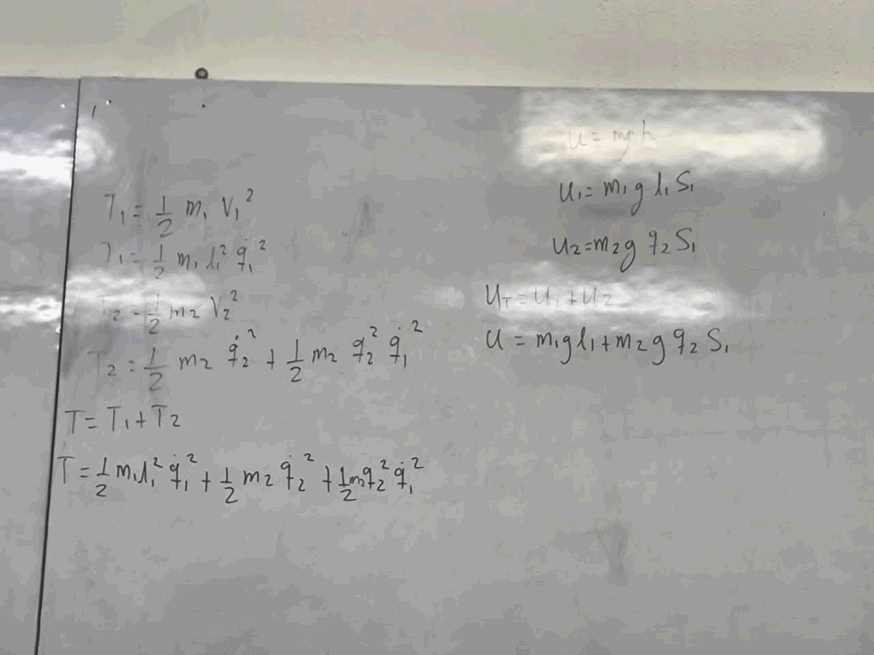 T₁ = 1/2 m₁ V₁²
T₁ = 1/2 m₁ l₁² q̇₁²
T₂ = 1/2 m₂ V₂²
T₂ = 1/2 m₂ q̇₂² + 1/2 m₂ q₂² q̇₁²
T = T₁ + T₂
T = 1/2 m₁ l₁² q̇₁² + 1/2 m₂ q̇₂² + 1/2 m₂ q₂² q̇₁²
U = mgh
U₁ = m₁ g l₁ S₁
U₂ = m₂ g q₂ S₁
U_T = U₁ + U₂
U = m₁ g l₁ + m₂ g q₂ S₁